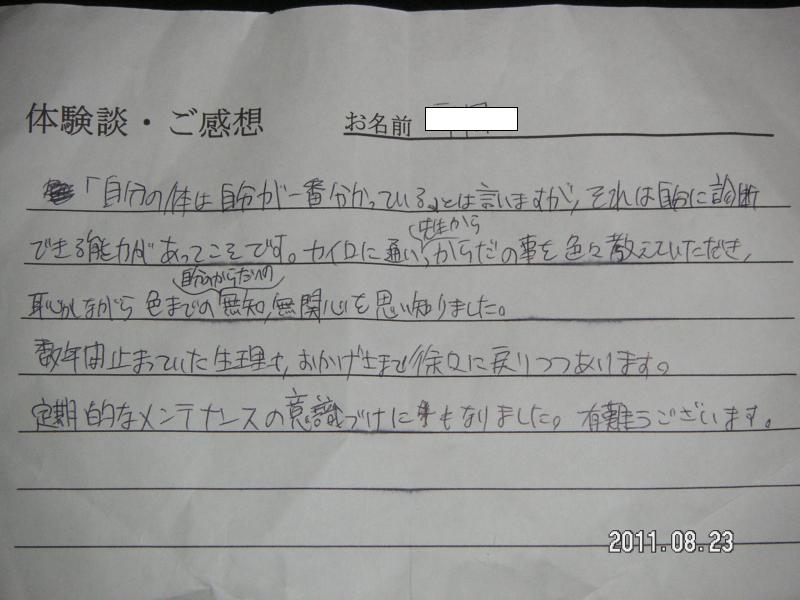 体験談・ご感想 お名前
「自分の体は自分が一番分かっている」とは言いますが、それは自分に診断
先生から
できる能力があってこそです。カイロに通い、からだの事を色々教えていただき、
自分のからだへの
恥かしながら 色までの無知、無関心を思い知りました。
数年間止まっていた生理も、おかげさまで徐々に戻りつつあります。
定期的なメンテナンスの意識づけにもなりました。有難うございます。
2011.08.23